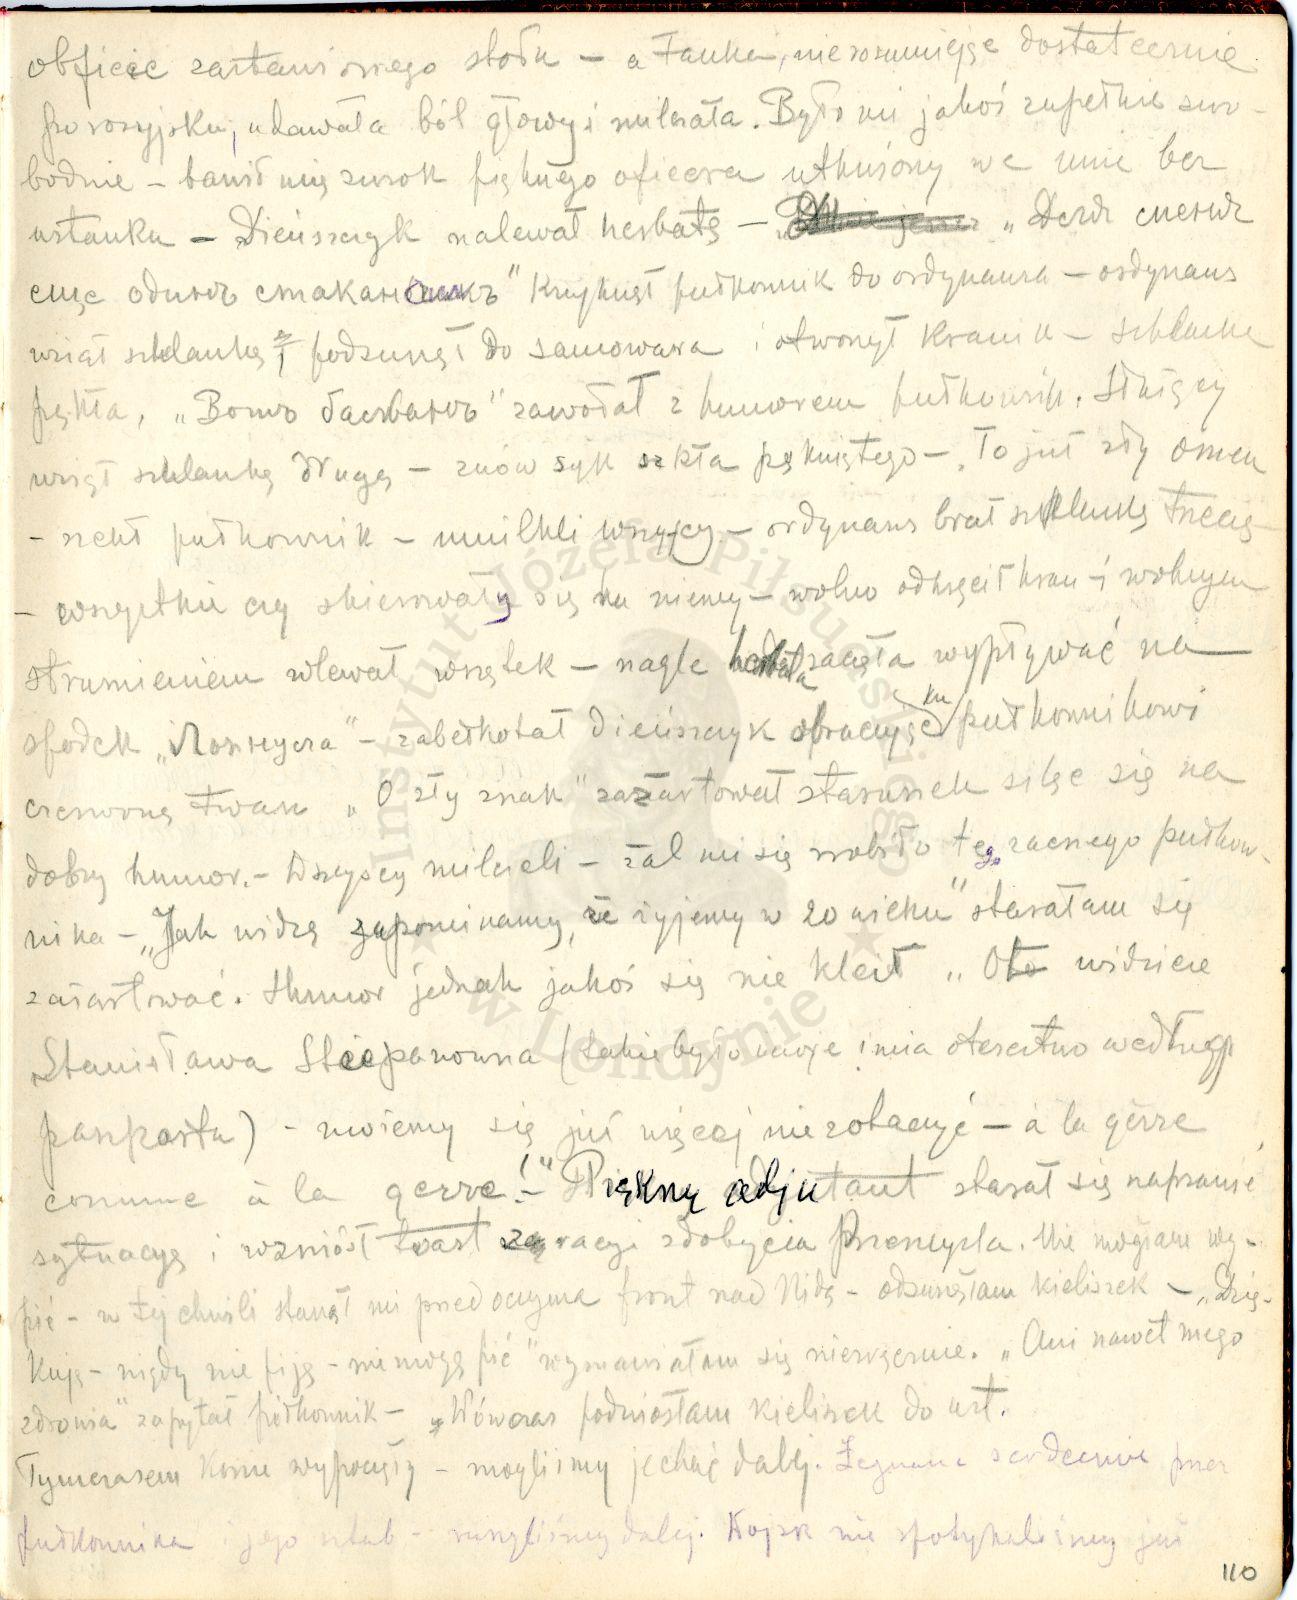 obficie zastawionego stołu – a Fanka, nie rozumiejąc dostatecznie
po rosyjsku, udawała ból głowy i milczała. Było mi jakoś zupełnie swo-
bodnie – bawił mię wzrok pięknego oficera utkwiony we mnie bez
ustanku – Dieńszczyk nalewał herbatę – „
еще одинъ стаканчикъ" Krzyknął pułkownik do ordynansa – ordynans
wziął szklankę i podsunął do samowara i otworzył kranik – szklanka
pękła, „ zawołał z humorem pułkownik. Służący
wziął szklankę drugą – znów syk szkła pękniętego – „To już zły omen
– rzekł pułkownik – umilkli wszyscy – ordynans brał szklankę trzecią
– wszystkie oczy skierowały się ku niemu – wolno odkręcił kran – i wolnym
strumieniem wlewał wrzątek – nagle herbata zaczęła wypływać na
spodek „Лопнула" – zabełkotał dieńszczyk obracając ku pułkownikowi
czerwoną twarz „O zły znak" zażartował staruszek siląc się na
dobry humor. – Wszyscy milczeli – żal mi się zrobiło tego zacnego pułkow-
nika – „Jak widzę zapominamy, że żyjemy w 20 wieku" starałam się
zażartować. Humor jednak jakoś się nie kleił „Oto widzicie
Stanisława Stiepanowna (takie było moje imia otczestwo według
paszportu) – możemy się już więcej nie zobaczyć – à la gerre
comme à la gerre!" – Piękny adjutant starał się naprawić
sytuację i wzniósł toast racji zdobycia Przemyśla. Nie mogłam wy-
pić – w tej chwili stanął mi przed oczyma front nad Nidą – odsunęłam kieliszek – „Dzię-
kuję – nigdy nie piję – nie mogę pić" wymawiałam się niezręcznie. „Ani nawet mego
zdrowia" zapytał pułkownik – Wówczas podniosłam kieliszek do ust.
Tymczasem konie wypoczęły – mogliśmy jechać dalej. Żegnane serdecznie przez
pułkownika i jego sztab – ruszyliśmy dalej. Wojsk nie spotykaliśmy już
110
Instytut Józefa Piłsudskiego
w Londynie